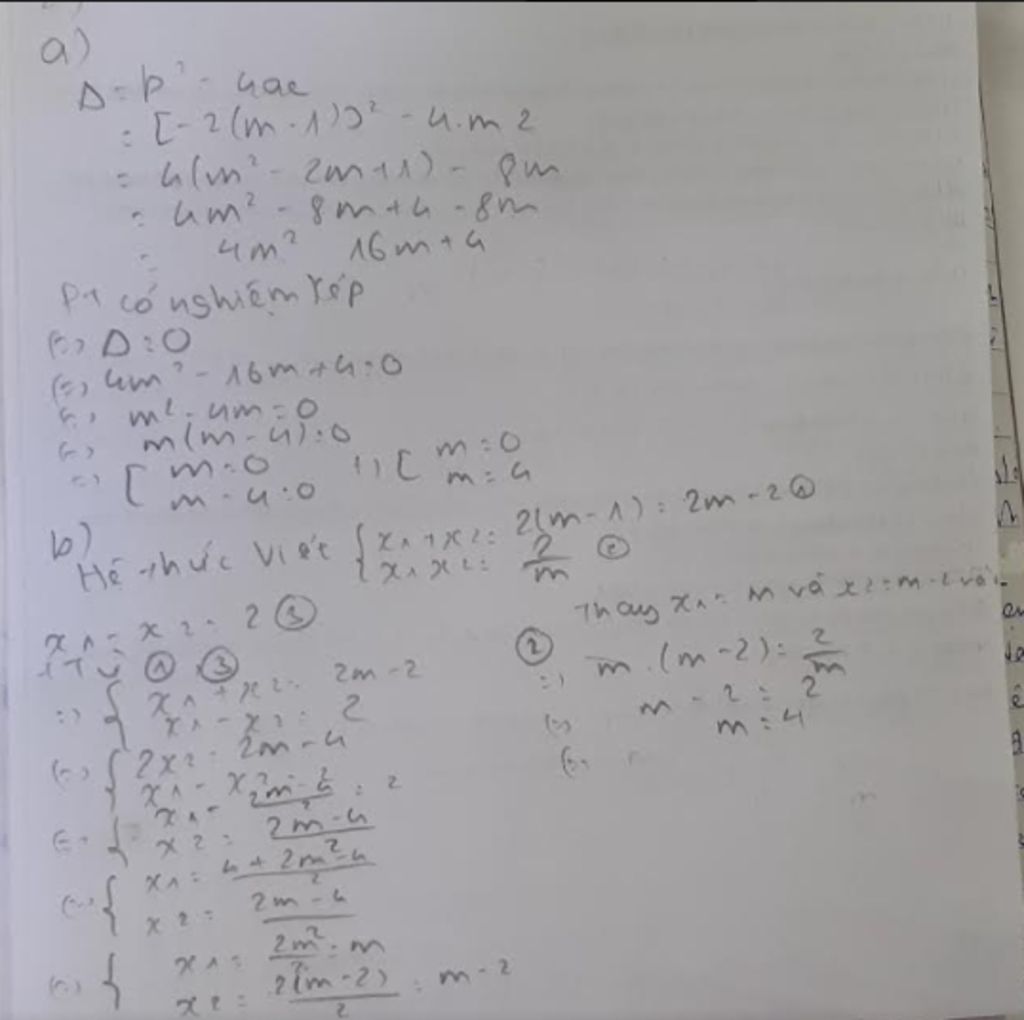 a)
Δ = b² - 4ac
= [-2(m-1)]² - 4.m 2
= 4(m² - 2m+1) - 8m
= 4m² - 8m+4 - 8m
= 4m² 16m+4
Pt có nghiệm kép
(=) Δ = 0
(=) 4m² - 16m+4=0
(=) m² - 4m = 0
(=) m(m-4)=0
=) [ m=0 (=) [ m=0
m-4=0 m=4
b)
Hệ thức Viét { x1+x2= 2(m-1)= 2m-2 ①
x1x2= 2/m ②
x1 - x2 = 2 ③
Từ ① ③
=) { x1+x2= 2m-2
x1-x2= 2
(=) { 2x2= 2m-4
x1-x2 = 2
(=) { x1- (2m-4)/2 = 2
x2= (2m-4)/2
(=) { x1= (4+2m-4)/2
x2= (2m-4)/2
(=) { x1= 2m/2 = m
x2= 2(m-2)/2 = m-2
Thay x1= m và x2=m-2 vào
② m.(m-2)= 2/m
=) m-2 = 2
(=) m=4
(=)